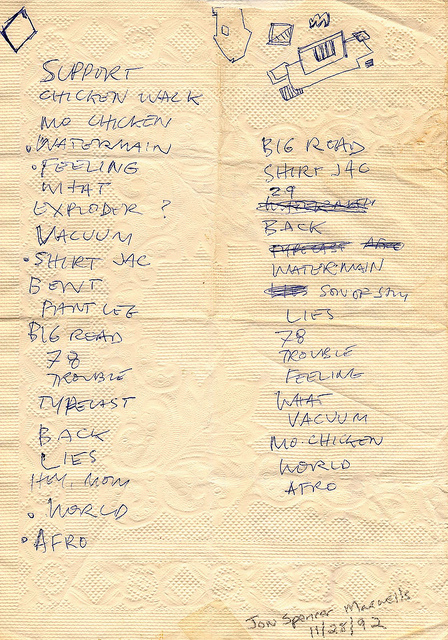 SUPPORT
CHICKEN WALK
MO CHICKEN
. WATERMAIN
. FEELING
WHAT
EXPLODER ?
VACUUM
. SHIRT JAC
BENT
PANT LEG
BIG READ
78
TROUBLE
TYPECAST
BACK
LIES
HEY, MOM
. WORLD
. AFRO
BIG ROAD
SHIRT JAC
29
BACK
TYPECAST AFRO
WATERMAIN
SON OF SAM
LIES
78
TROUBLE
FEELING
WHAT
VACUUM
MO. CHICKEN
WORLD
AFRO
Jon Spencer Maxwells
11/28/92